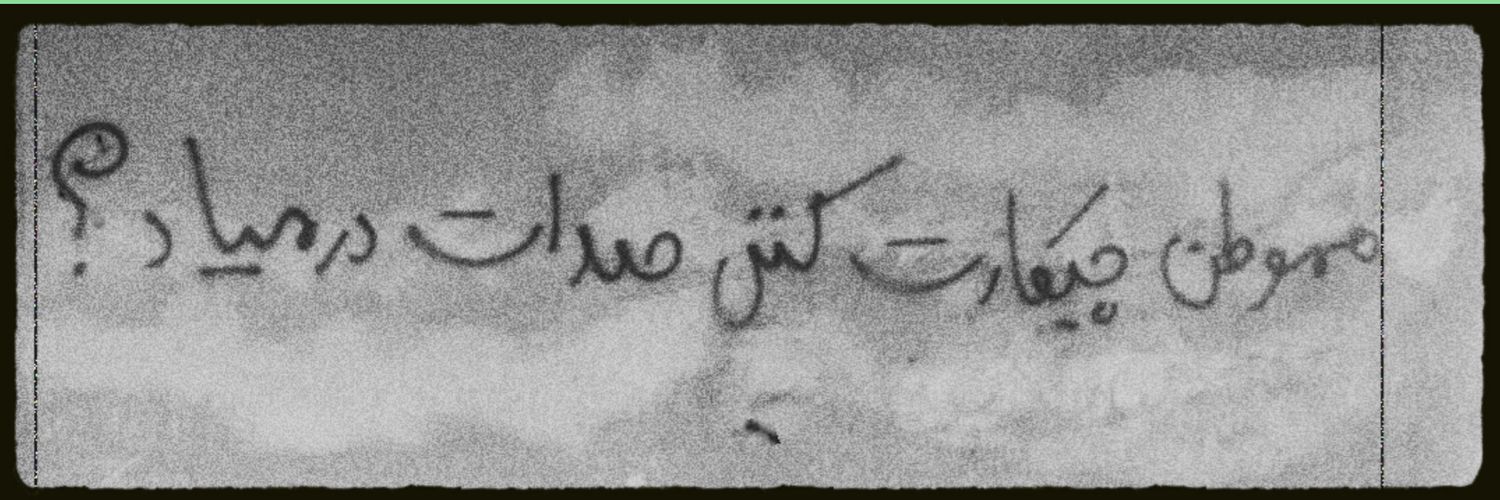 هموطن چیکارت کنن صدات درمیاد ؟